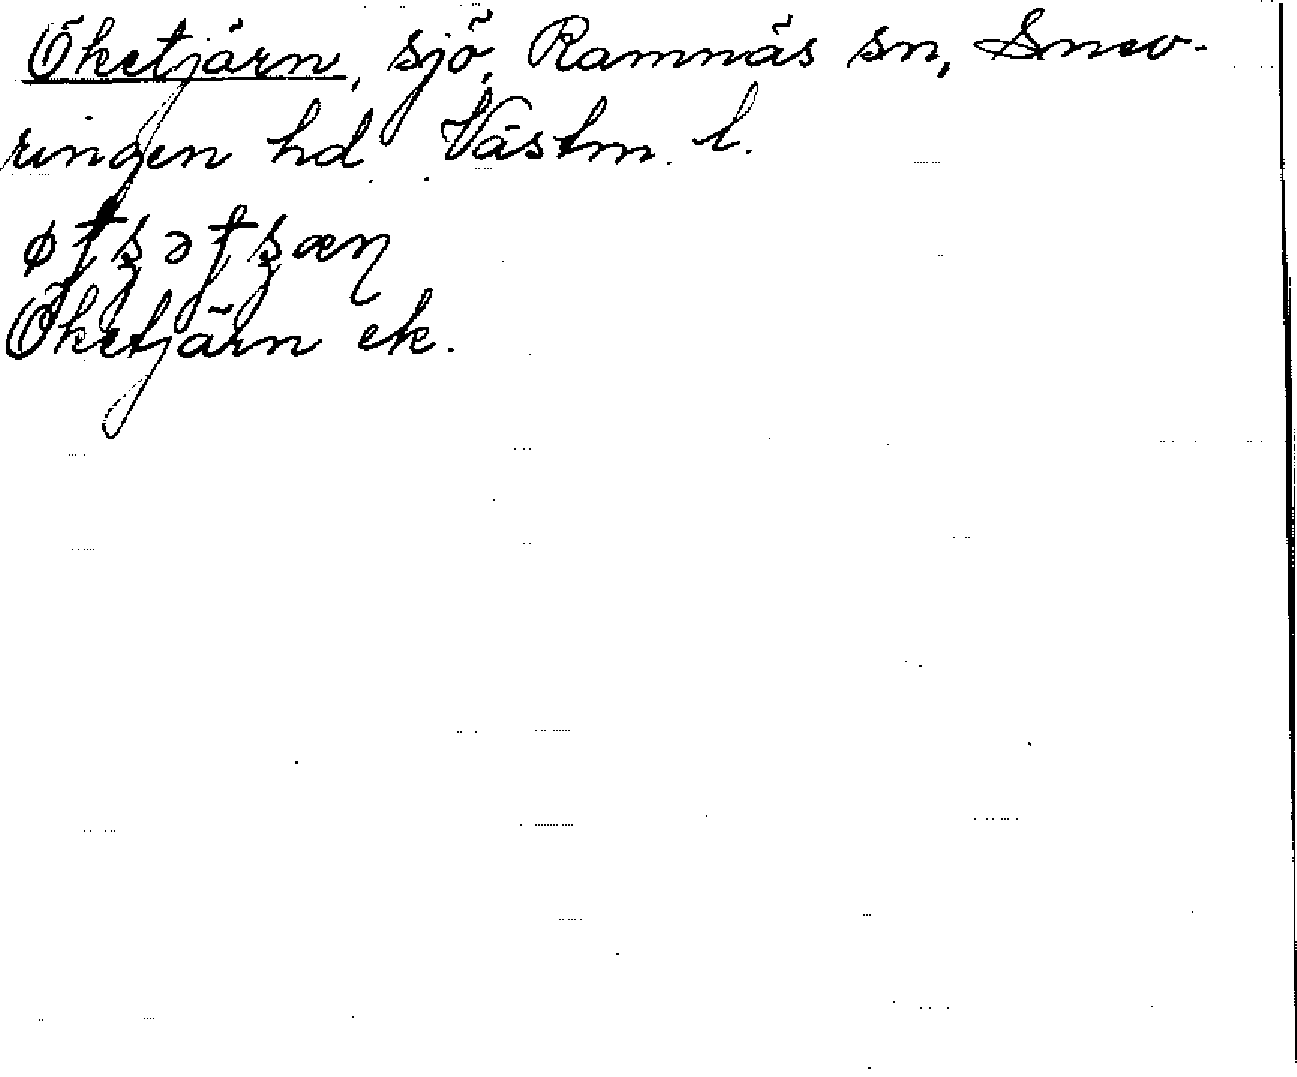 Öketjärn, sjö, Ramnäs sn, Snev-
ringen hd. Västm. l.
Öketjärn ek.